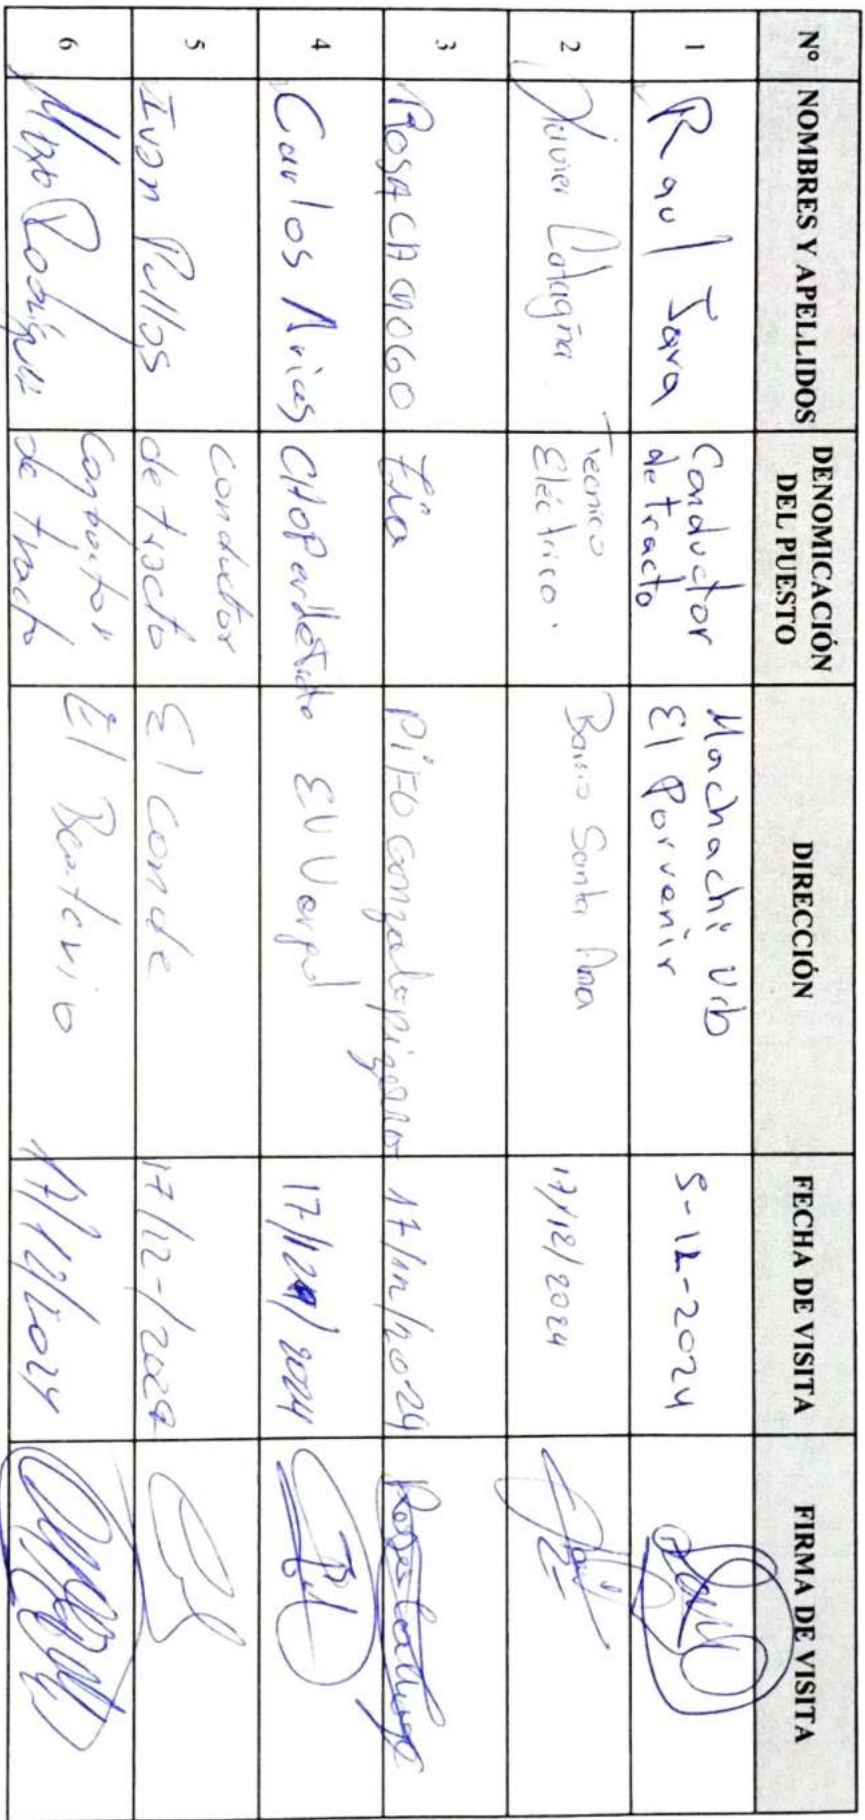 Nº NOMBRES Y APELLIDOS DENOMICACIÓN DEL PUESTO DIRECCIÓN FECHA DE VISITA FIRMA DE VISITA
1 Raul Jara Conductor de tracto Machachi Urb El Porvenir 5-12-2024
2 Javier Catagña Tecnico Eléctrico. Barrio Santa Ana 17/12/2024
3 ROSA CACHAGO Pifo Gonzalo Pizarro 17/12/2024
4 Carlos Arias El Vergel 17/12/2024
5 Ivan Pullos conductor de tracto El Conde 17/12/2024
6 Rodriguez Conductor de tracto El 17/12/2024